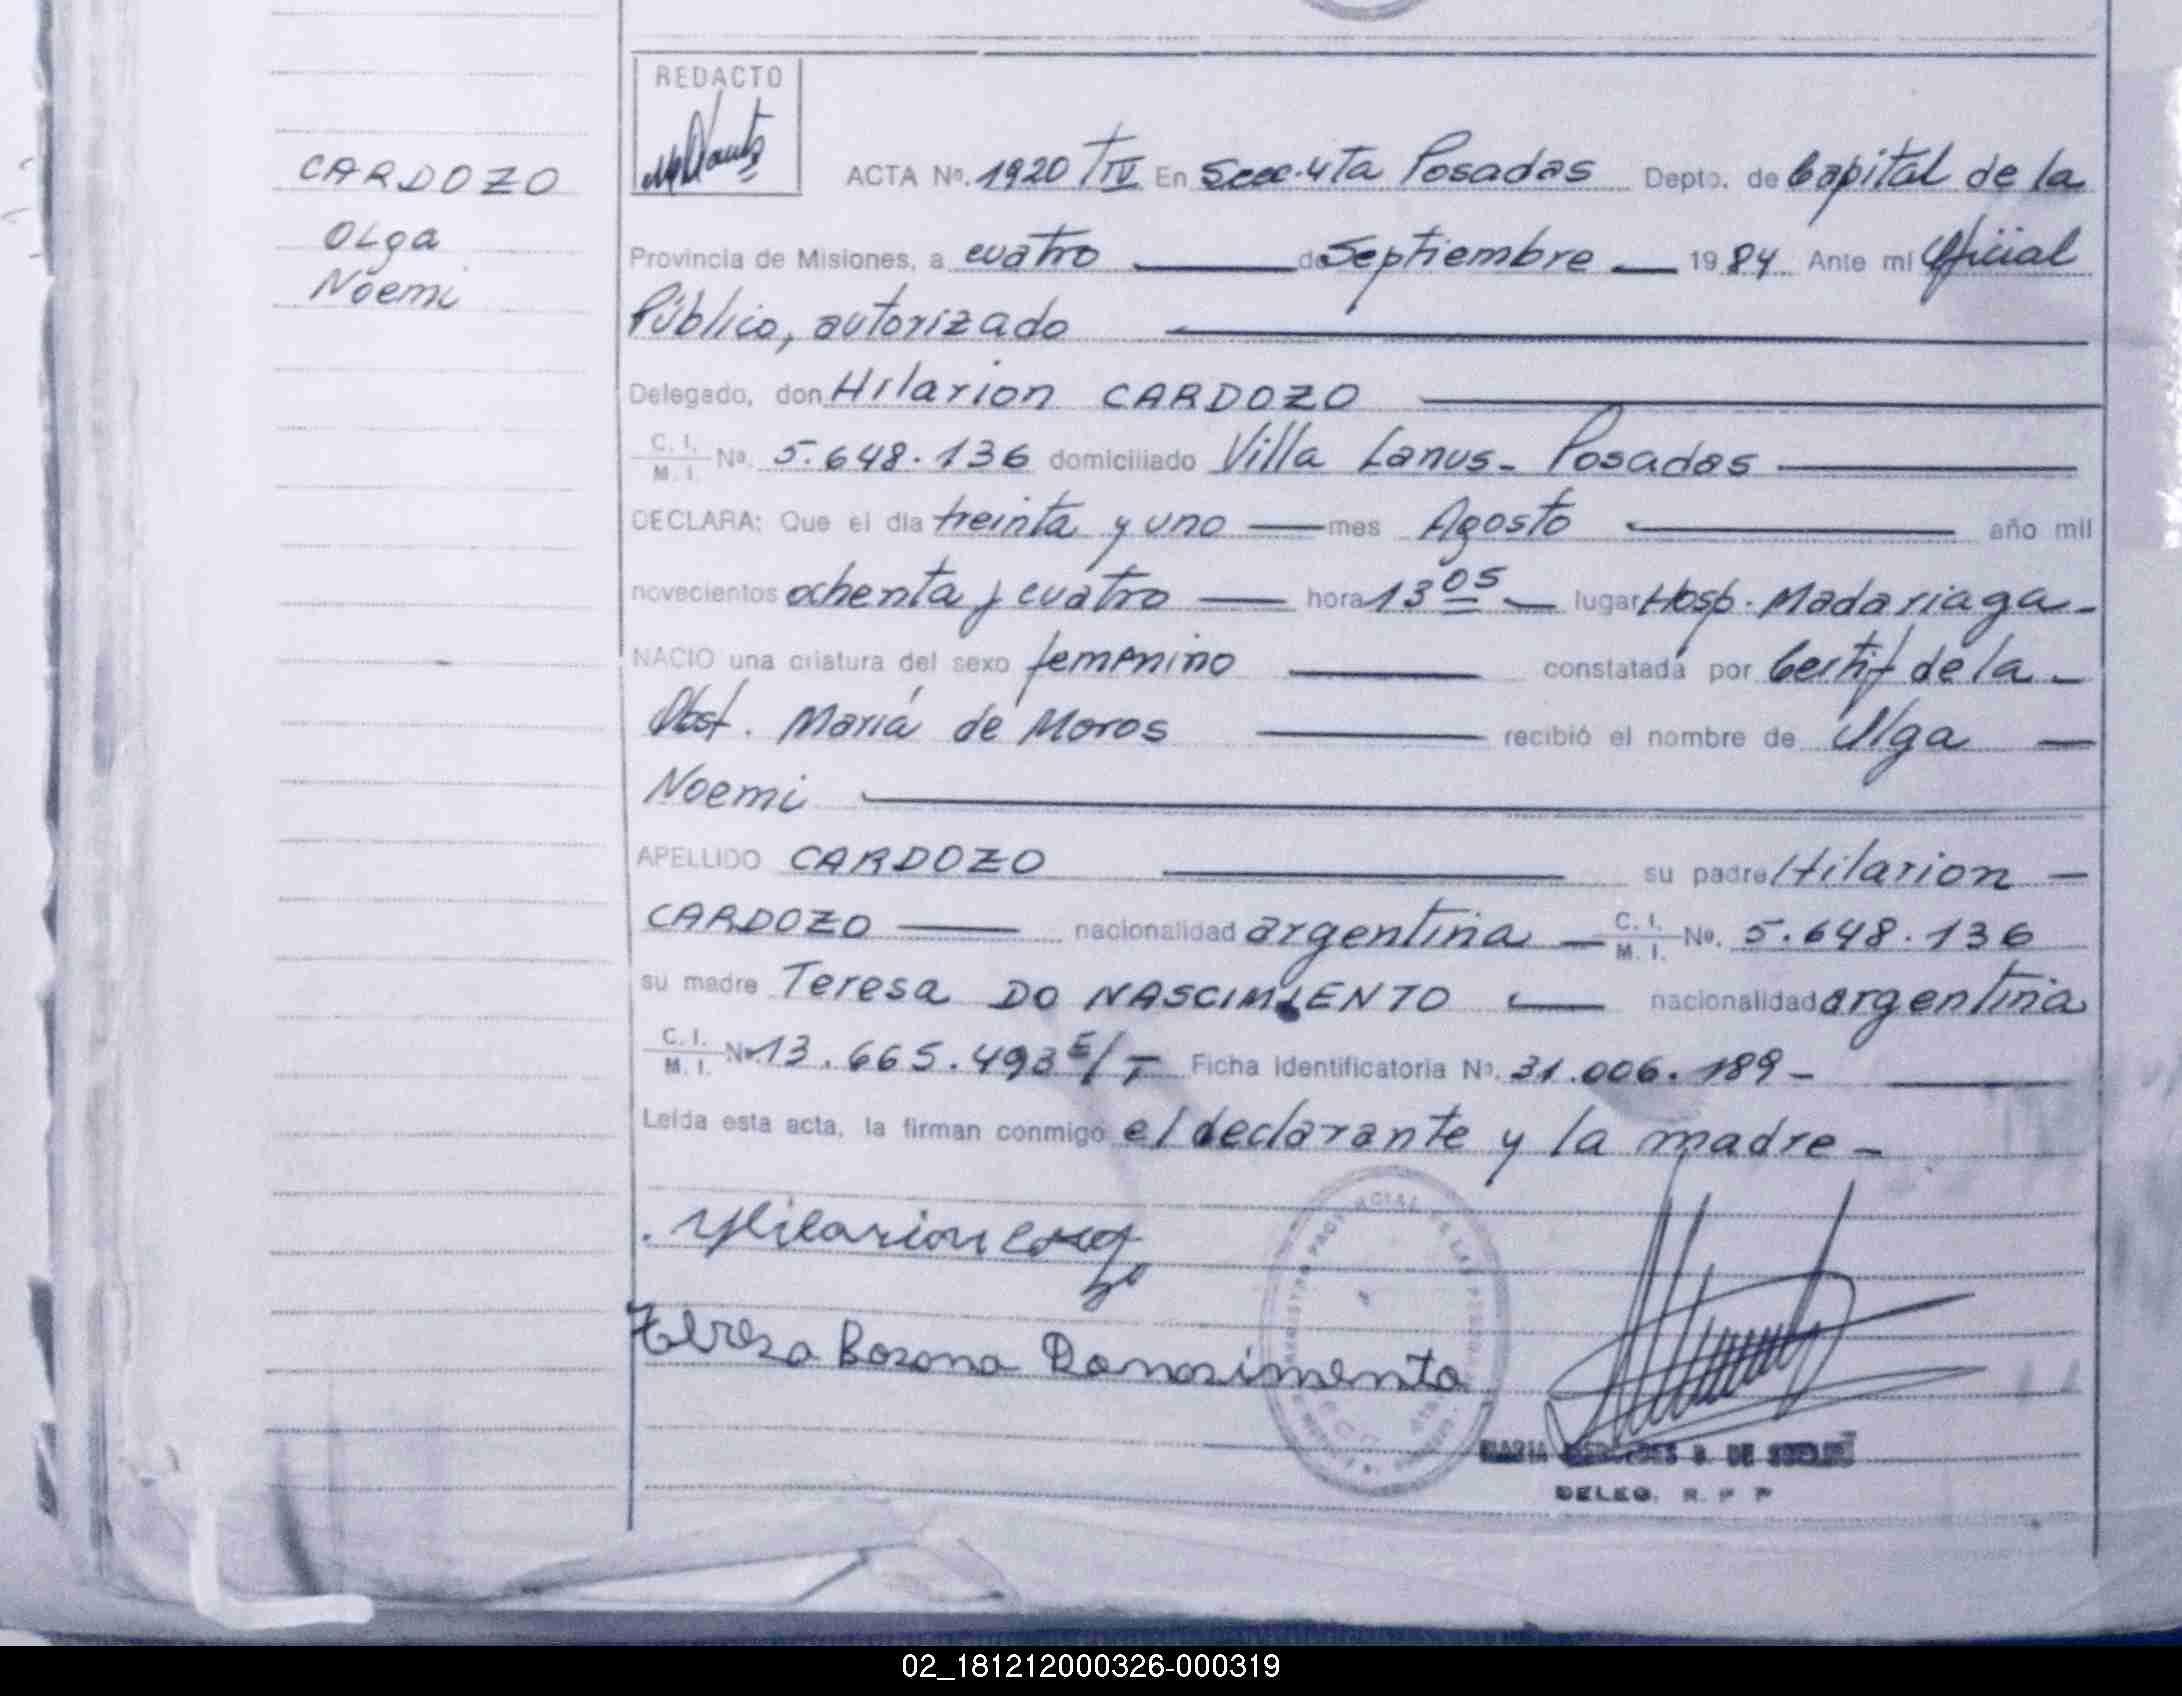 REDACTO
CARDOZO
Olga
Noemi
ACTA Nº. 1920 T/IV En Secc. 4ta Posadas Depto. de Capital de la
Provincia de Misiones, a cuatro de Septiembre 1984 Ante mi Oficial
Público, autorizado
Delegado, don Hilarion CARDOZO
C. I. M. I. Nº. 5.648.136 domiciliado Villa Lanus - Posadas
DECLARA: Que el dia treinta y uno mes Agosto año mil
novecientos ochenta y cuatro hora 13 05 lugar Hosp. Madariaga -
NACIO una criatura del sexo femenino constatada por Certif de la -
Obst. María de Moros recibió el nombre de Olga
Noemi
APELLIDO CARDOZO su padre Hilarion
CARDOZO nacionalidad argentina C. I. M. I. Nº. 5.648.136
su madre Teresa DO NASCIMIENTO nacionalidad argentina
C. I. M. I. Nº 13.665.493 E/T Ficha Identificatoria Nº. 31.006.189 -
Leida esta acta, la firman conmigo el declarante y la madre -
Hilarion
Teresa
MARIA MERCEDES B. DE
DELEG. R. P. P
02_181212000326-000319